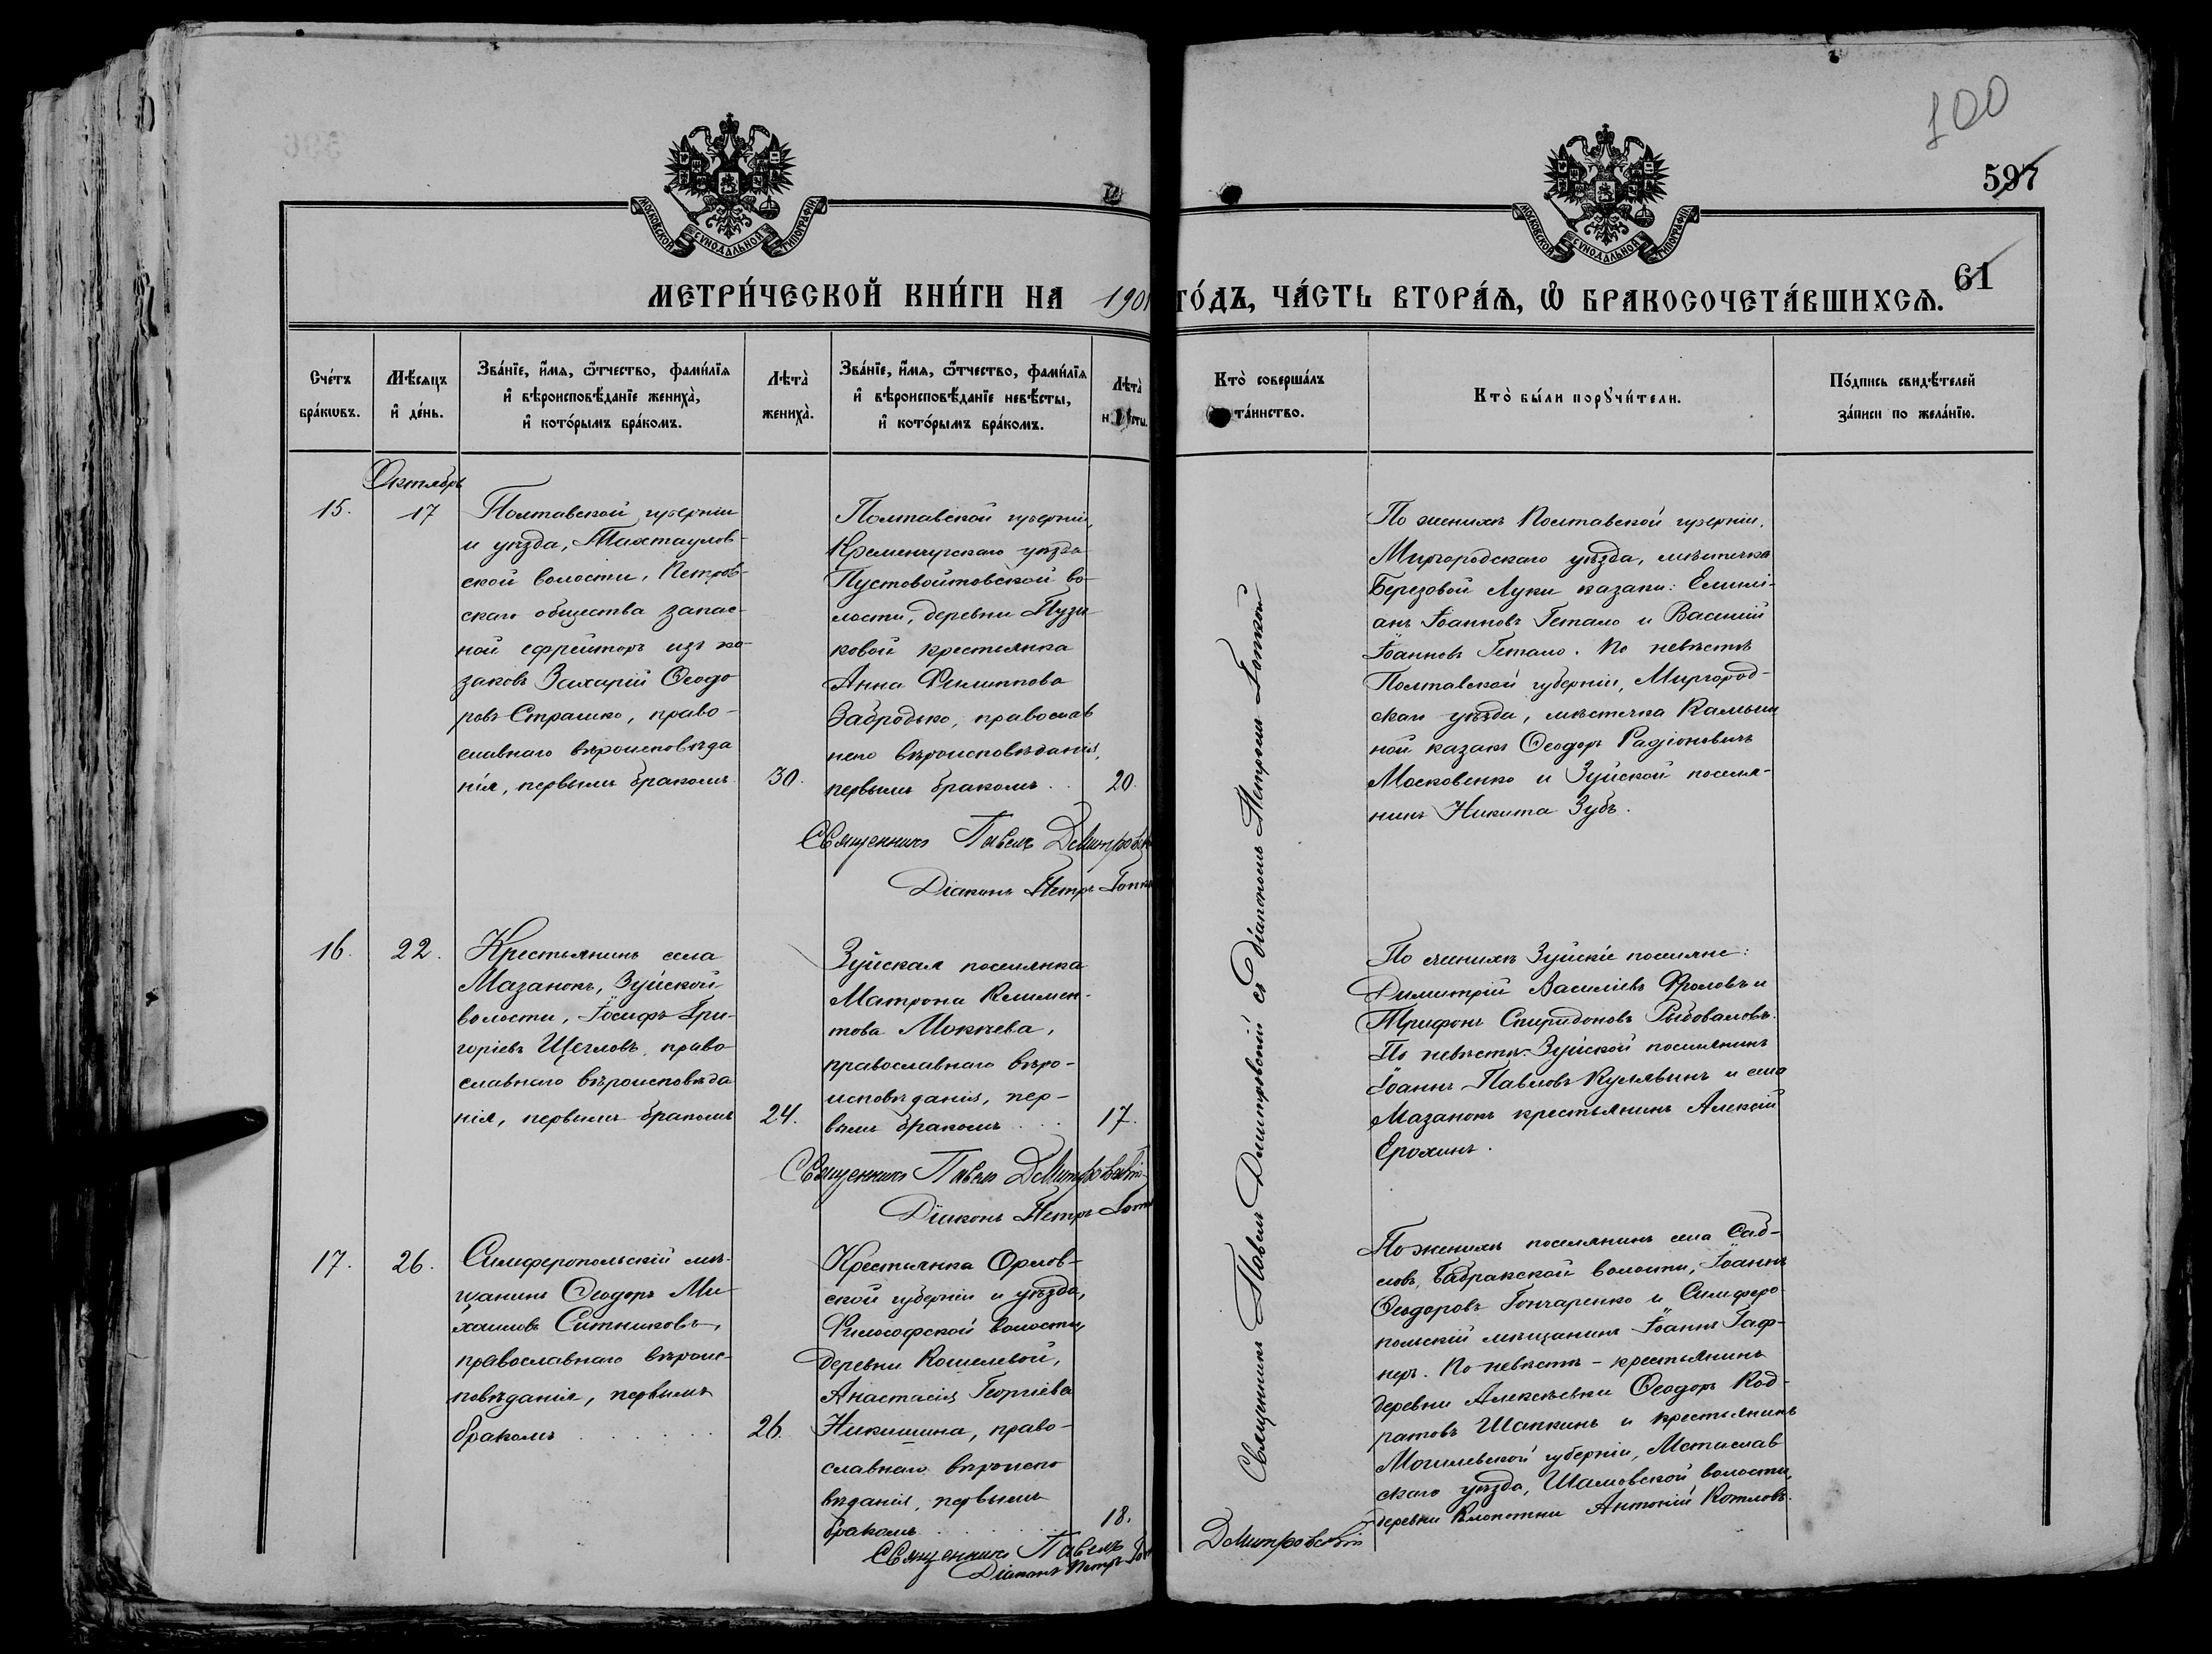 100
597
61
МОСКОВСКОЙ СѴНОДАЛЬНОЙ ТИПОГРАФІИ
МОСКОВСКОЙ СѴНОДАЛЬНОЙ ТИПОГРАФІИ
МЕТРИ́ЧЕСКОЙ КНИ́ГИ НА 1901 ГО́ДЪ, ЧА́СТЬ ВТОРА́Ѧ, Ѽ БРАКОСОЧЕТА́ВШИХСѦ.
Сче́тъ
бра́кѡвъ.
Мѣ́сяцъ
и҆ де́нь.
Зва́нїе, и҆́мѧ, ѻ҆́тчество, фами́лїѧ
и҆ вѣроисповѣ́данїе жениха̀,
и҆ кото́рымъ бра́комъ.
Лѣта̀
жениха̀.
Зва́нїе, и҆́мѧ, ѻ҆́тчество, фами́лїѧ
и҆ вѣроисповѣ́данїе невѣ́сты,
и҆ кото́рымъ бра́комъ.
Лѣта̀
невѣ́сты.
Кто̀ соверша́лъ
та́инство.
Кто̀ бы́ли порꙋчи́тели.
По́дпись свидѣ́телей
за́писи по жела́нїю.
Октябрь
15.
17
Полтавской губерніи
и уѣзда, Тахтаулов-
ской волости, Петров-
скаго общества запас-
ной ефрейторъ изъ ка-
заковъ Захарій Ѳеодо
ровъ Страшко, право-
славнаго вѣроисповѣда
нія, первымъ бракомъ
30.
Полтавской губерніи,
Кременчугскаго уѣзда
Пустовойтовской во-
лости, деревни Пузи
ковой крестьянка
Анна Филиппова
Забродько, православ
наго вѣроисповѣданія,
первымъ бракомъ . .
20.
Священникъ Павелъ Дмитровскій
Діаконъ Петръ
По женихѣ Полтавской губерніи,
Миргородскаго уѣзда, мѣстечка
Березовой Луки казаки: Емилі-
анъ Іоанновъ Гетало и Василій
Іоанновъ Гетало. По невѣстѣ
Полтавской губерніи, Миргород-
скаго уѣзда, мѣстечка Камыш
ной казакъ Ѳеодоръ Радіоновичъ
Московенко и Зуйской поселя-
нинъ Никита Зубъ.
Священникъ Павелъ Дмитровскій съ Діакономъ Петромъ
16.
22.
Крестьянинъ села
Мазанокъ, Зуйской
волости, Іосифъ Гри-
горіевъ Щегловъ, право
славнаго вѣроисповѣда
нія, первымъ бракомъ
24.
Зуйская поселянка
Матрона Климен-
това Мокѣева,
православнаго вѣро-
исповѣданія, пер-
вымъ бракомъ . . .
17.
Священникъ Павелъ Дмитровскій
Діаконъ Петръ
По женихѣ Зуйскіе поселяне:
Димитрій Василіевъ Фроловъ и
Трифонъ Спиридоновъ Рыбоваловъ.
По невѣстѣ: Зуйской поселянинъ
Іоаннъ Павловъ Кулявинъ и села
Мазанокъ крестьянинъ Алексій
Ерохинъ.
17.
26.
Симферопольскій мѣ-
щанинъ Ѳеодоръ Ми-
хаиловъ Ситниковъ,
православнаго вѣроис-
повѣданія, первымъ
бракомъ . . . . . .
26.
Крестьянка Орлов-
ской губерніи и уѣзда,
Философской волости,
деревни Кошелевой,
Анастасія Георгіева
Никишина, право-
славнаго вѣроиспо
вѣданія, первымъ
бракомъ . . . . . .
18.
Священникъ Павелъ Дмитровскій
Діаконъ Петръ
По женихѣ поселянинъ села Саб-
ловъ, Бадракской волости, Іоаннъ
Ѳеодоровъ Гончаренко и Симферо
польскій мѣщанинъ Іоаннъ Гаф-
неръ. По невѣстѣ - крестьянинъ
деревни Алексѣевки Ѳеодоръ Код-
ратовъ Шапкинъ и крестьянинъ
Могилевской губерніи, Мстислав
скаго уѣзда, Шамовской волости,
деревни Клопотни Антоній Котловъ.